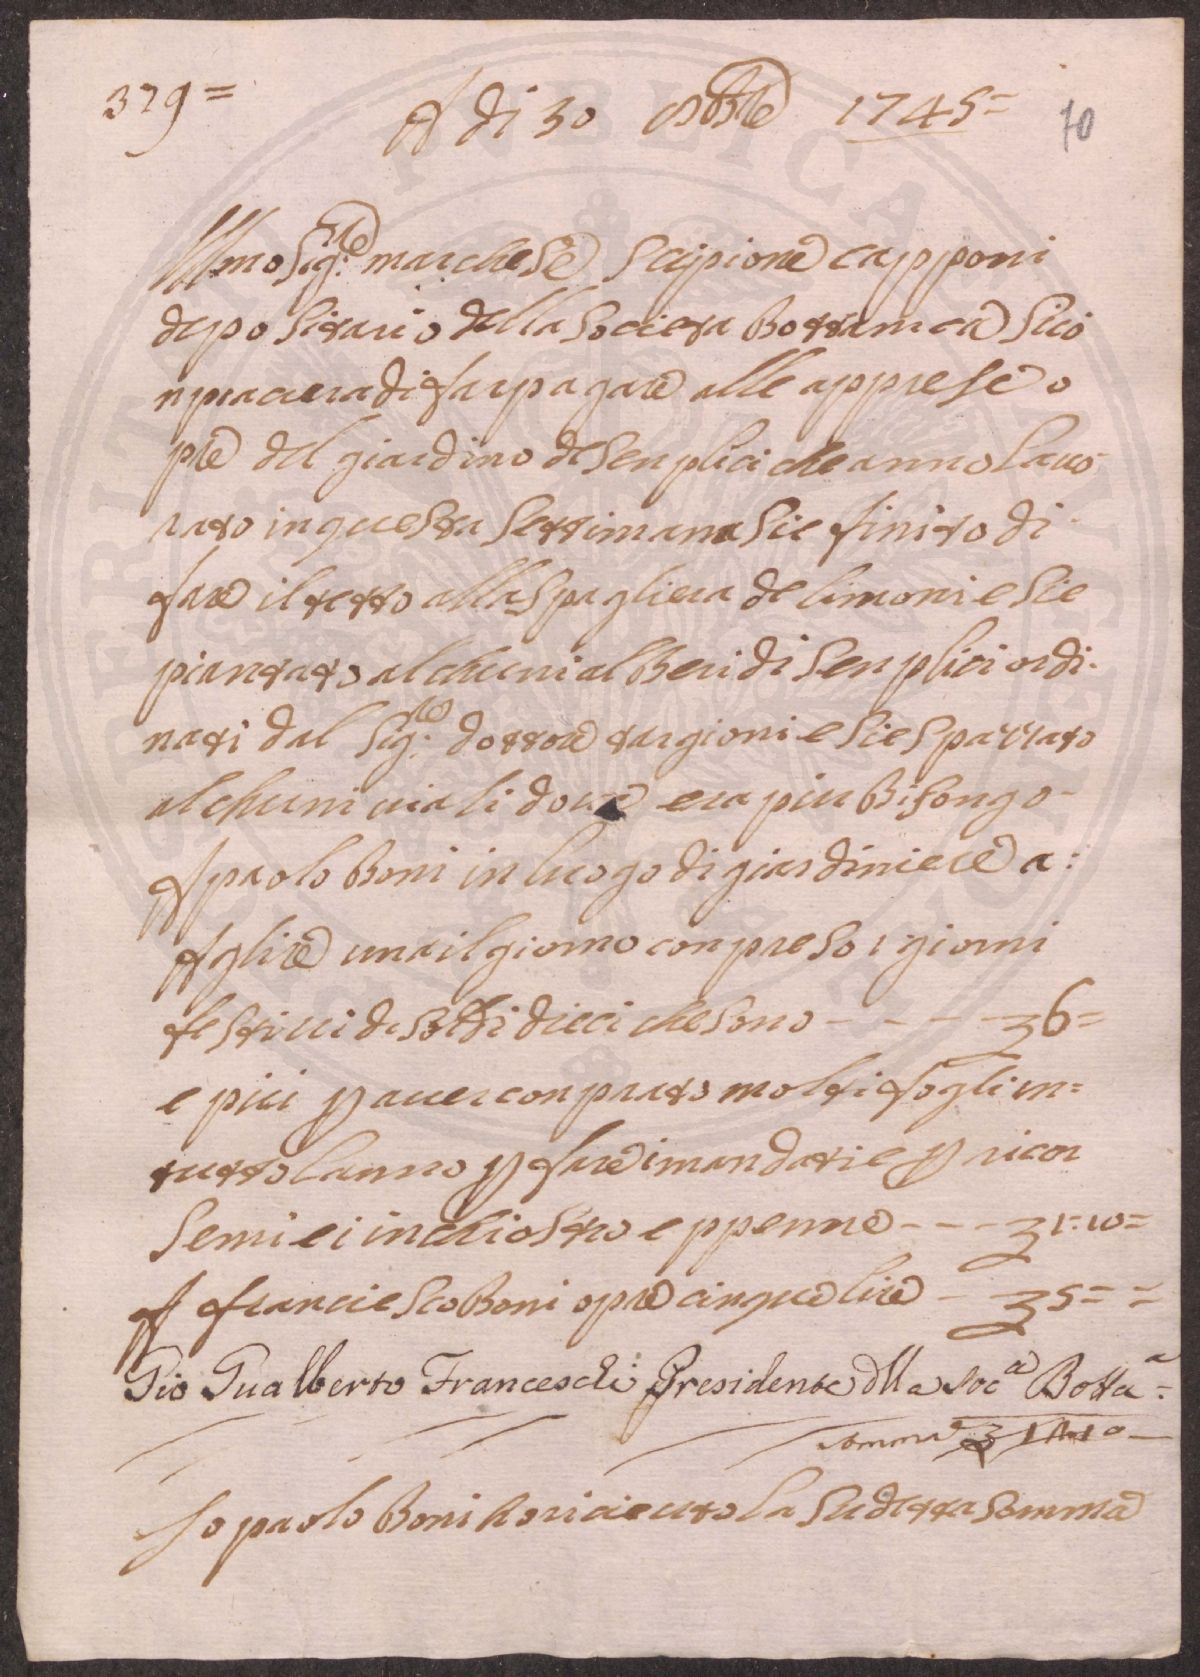 329=
A di 30 ottbre 1745=
70
Illmo Sigre: marchese Scipione capponi
depo sitario della Societa Bottanica Sua
npiacera di far pagare alle apprese o
pre del giardino de Senplici che anno lauo
rato in questa Settimana Sie finito di
fare il tetto alla Spagliera de limoni e Sie
piantato alchuni alBeri di Senplici ordi
nati dal Sigre: dottore targioni e Sie Spazzato
alchuni uiali doue era piu Bisongo
A paolo Boni in luogo di giardiniere a:
A glire una il giorno conpreso i giorni
festiui di soldi dieci che sono - - - - 36=
e piu p auer conprato molti fogli in=
tutto lanno p fare i mandati e p ricor
Semi e i inchiostro e ppenne - - - 31:10=
A franciesco Boni opre cinque lire - 35= =
Gio Gualberto Franceschi Presidente dlla Soca Botta=
somma
Io paolo Boni ho riceuuto la Sudetta Somma